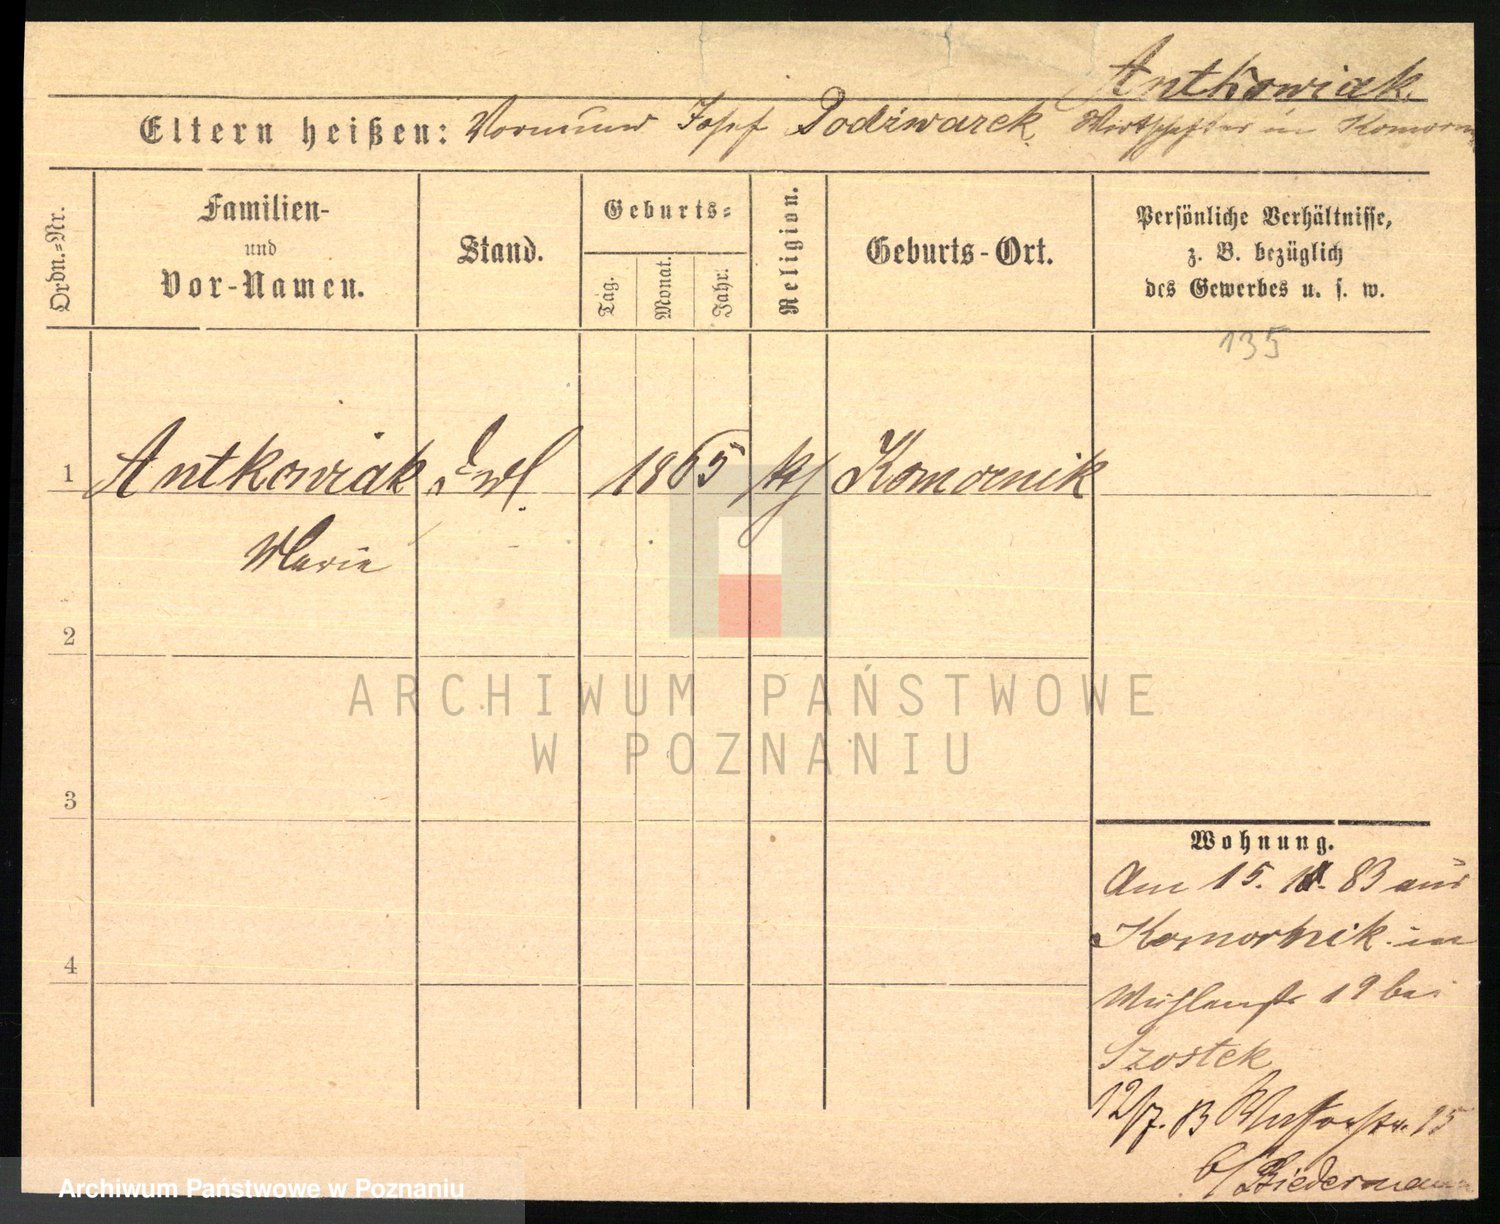 Antkowiak
Eltern heißen: Vormund Josef Podziwarek Wirthschafter in Komornik
Ordn.=Nr.
Familien-
und
Vor-Namen.
Stand.
Geburts=
Tag.
Monat.
Jahr.
Religion.
Geburts-Ort.
Persönliche Verhältnisse,
z. B. bezüglich
des Gewerbes u. s. w.
135
1 Antkowiak 1865 kth Komornik
Marie
2
3
4
ARCHIWUM PAŃSTWOWE
W POZNANIU
Wohnung.
Am 15. 83 aus
Komornik in
Mühlenstr 19 bei
Szostek
12/7. 83 15
b/ Biedermann
Archiwum Państwowe w Poznaniu